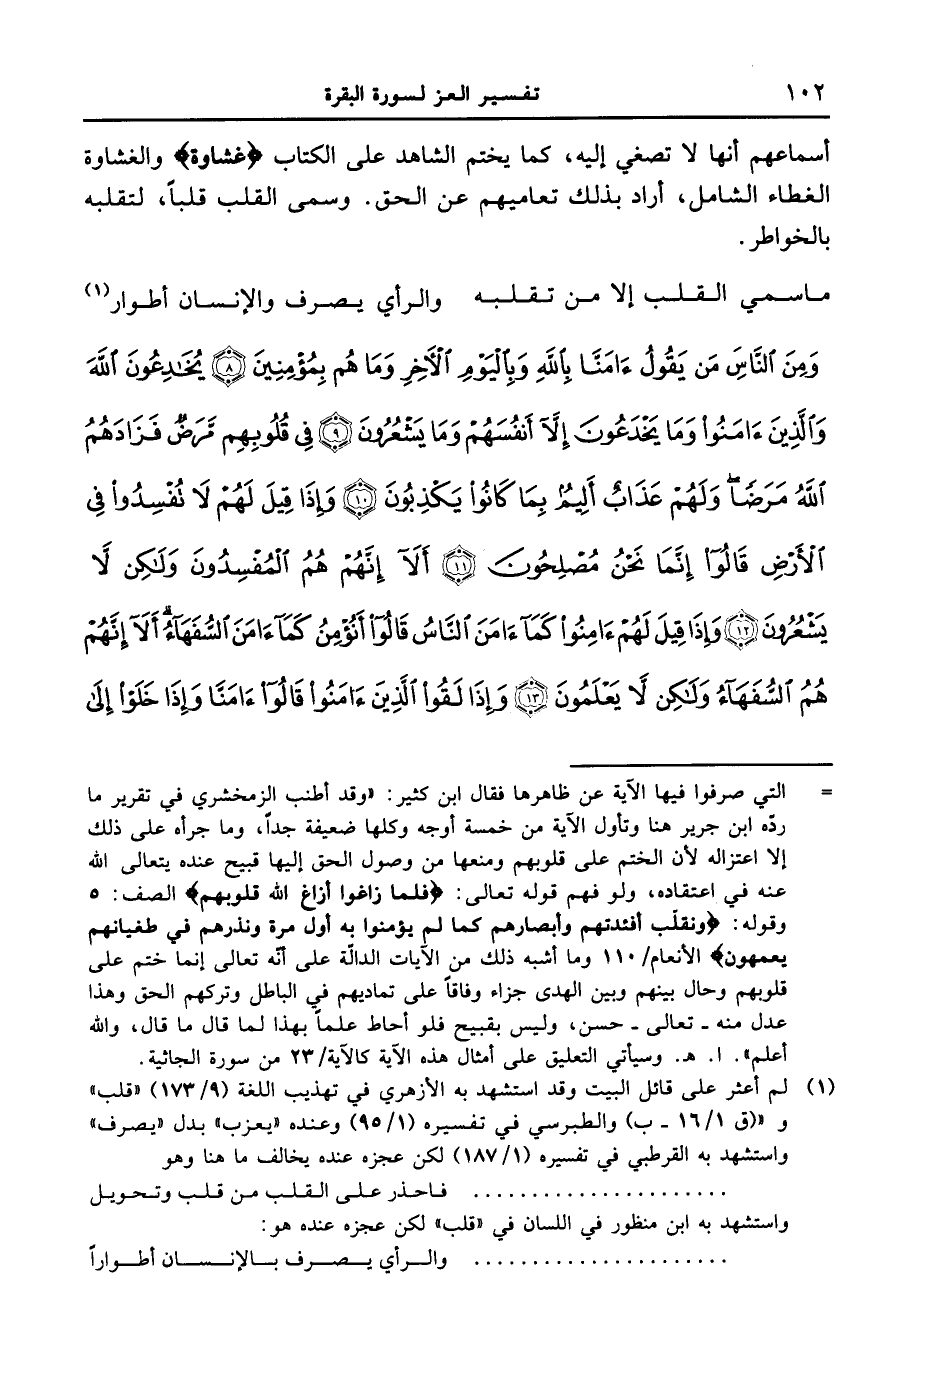 ١٠٢ تفسير العز لسورة البقرة
أسماعهم أنها لا تصغي إليه، كما يختم الشاهد على الكتاب ﴿غشاوة﴾ والغشاوة
الغطاء الشامل، أراد بذلك تعاميهم عن الحق. وسمى القلب قلباً، لتقلبه
بالخواطر.
ماسمي القلب إلا من تقلبه والرأي يصرف والإنسان أطوار(١)
وَمِنَ ٱلنَّاسِ مَن يَقُولُ ءَامَنَّا بِٱللَّهِ وَبِٱلْيَوْمِ ٱلْأَخِرِ وَمَا هُم بِمُؤْمِنِينَ ٨ يُخَٰدِعُونَ ٱللَّهَ
وَٱلَّذِينَ ءَامَنُوا۟ وَمَا يَخْدَعُونَ إِلَّآ أَنفُسَهُمْ وَمَا يَشْعُرُونَ ٩ فِى قُلُوبِهِم مَّرَضٌ فَزَادَهُمُ
ٱللَّهُ مَرَضًا ۖ وَلَهُمْ عَذَابٌ أَلِيمٌۢ بِمَا كَانُوا۟ يَكْذِبُونَ ١٠ وَإِذَا قِيلَ لَهُمْ لَا تُفْسِدُوا۟ فِى
ٱلْأَرْضِ قَالُوٓا۟ إِنَّمَا نَحْنُ مُصْلِحُونَ ١١ أَلَآ إِنَّهُمْ هُمُ ٱلْمُفْسِدُونَ وَلَٰكِن لَّا
يَشْعُرُونَ ١٢ وَإِذَا قِيلَ لَهُمْ ءَامِنُوا۟ كَمَآ ءَامَنَ ٱلنَّاسُ قَالُوٓا۟ أَنُؤْمِنُ كَمَآ ءَامَنَ ٱلسُّفَهَآءُ ۗ أَلَآ إِنَّهُمْ
هُمُ ٱلسُّفَهَآءُ وَلَٰكِن لَّا يَعْلَمُونَ ١٣ وَإِذَا لَقُوا۟ ٱلَّذِينَ ءَامَنُوا۟ قَالُوٓا۟ ءَامَنَّا وَإِذَا خَلَوْا۟ إِلَىٰ
= التي صرفوا فيها الآية عن ظاهرها فقال ابن كثير: «وقد أطنب الزمخشري في تقرير ما
ردّه ابن جرير هنا وتأول الآية من خمسة أوجه وكلها ضعيفة جداً، وما جرأه على ذلك
إلا اعتزاله لأن الختم على قلوبهم ومنعها من وصول الحق إليها قبيح عنده يتعالى الله
عنه في اعتقاده، ولو فهم قوله تعالى: ﴿فلما زاغوا أزاغ الله قلوبهم﴾ الصف: ٥
وقوله: ﴿ونقلّب أفئدتهم وأبصارهم كما لم يؤمنوا به أول مرة ونذرهم في طغيانهم
يعمهون﴾ الأنعام/ ١١٠ وما أشبه ذلك من الآيات الدالّة على أنّه تعالى إنما ختم على
قلوبهم وحال بينهم وبين الهدى جزاء وفاقاً على تماديهم في الباطل وتركهم الحق وهذا
عدل منه ـ تعالى ـ حسن، وليس بقبيح فلو أحاط علماً بهذا لما قال ما قال، والله
أعلم». ا. هـ. وسيأتي التعليق على أمثال هذه الآية كالآية/ ٢٣ من سورة الجاثية.
(١) لم أعثر على قائل البيت وقد استشهد به الأزهري في تهذيب اللغة (٩/ ١٧٣) «قلب»
و «(ق ١/ ١٦ ـ ب) والطبرسي في تفسيره (١/ ٩٥) وعنده «يعزب» بدل «يصرف»
واستشهد به القرطبي في تفسيره (١/ ١٨٧) لكن عجزه عنده يخالف ما هنا وهو
...................... فاحذر على القلب من قلب وتحويل
واستشهد به ابن منظور في اللسان في «قلب» لكن عجزه عنده هو:
...................... والرأي يصرف بالإنسان أطواراً